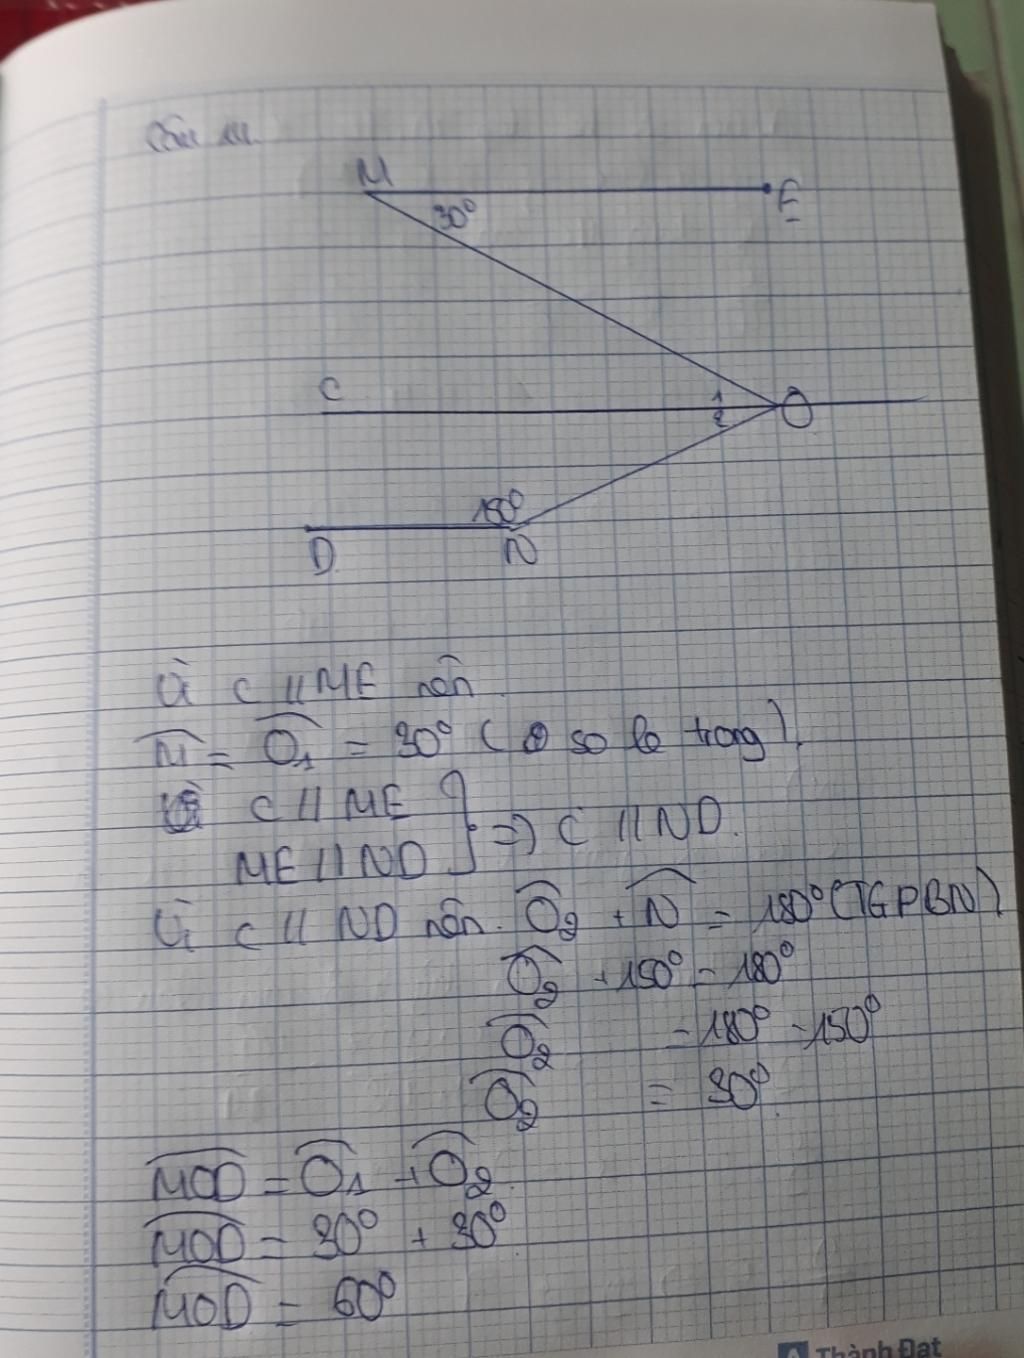 Câu
M
30°
E
C
1
O
2
150°
D
N
Vì C // ME nên
M = O1 = 30° ( so le trong )
Vì C // ME
ME // ND } => C // ND.
Vì C // ND nên. O2 + N = 180° (TGPBN)
O2 + 150° = 180°
O2 = 180° - 150°
O2 = 30°
MOD = O1 + O2
MOD = 30° + 30°
MOD = 60°
Thành Đạt